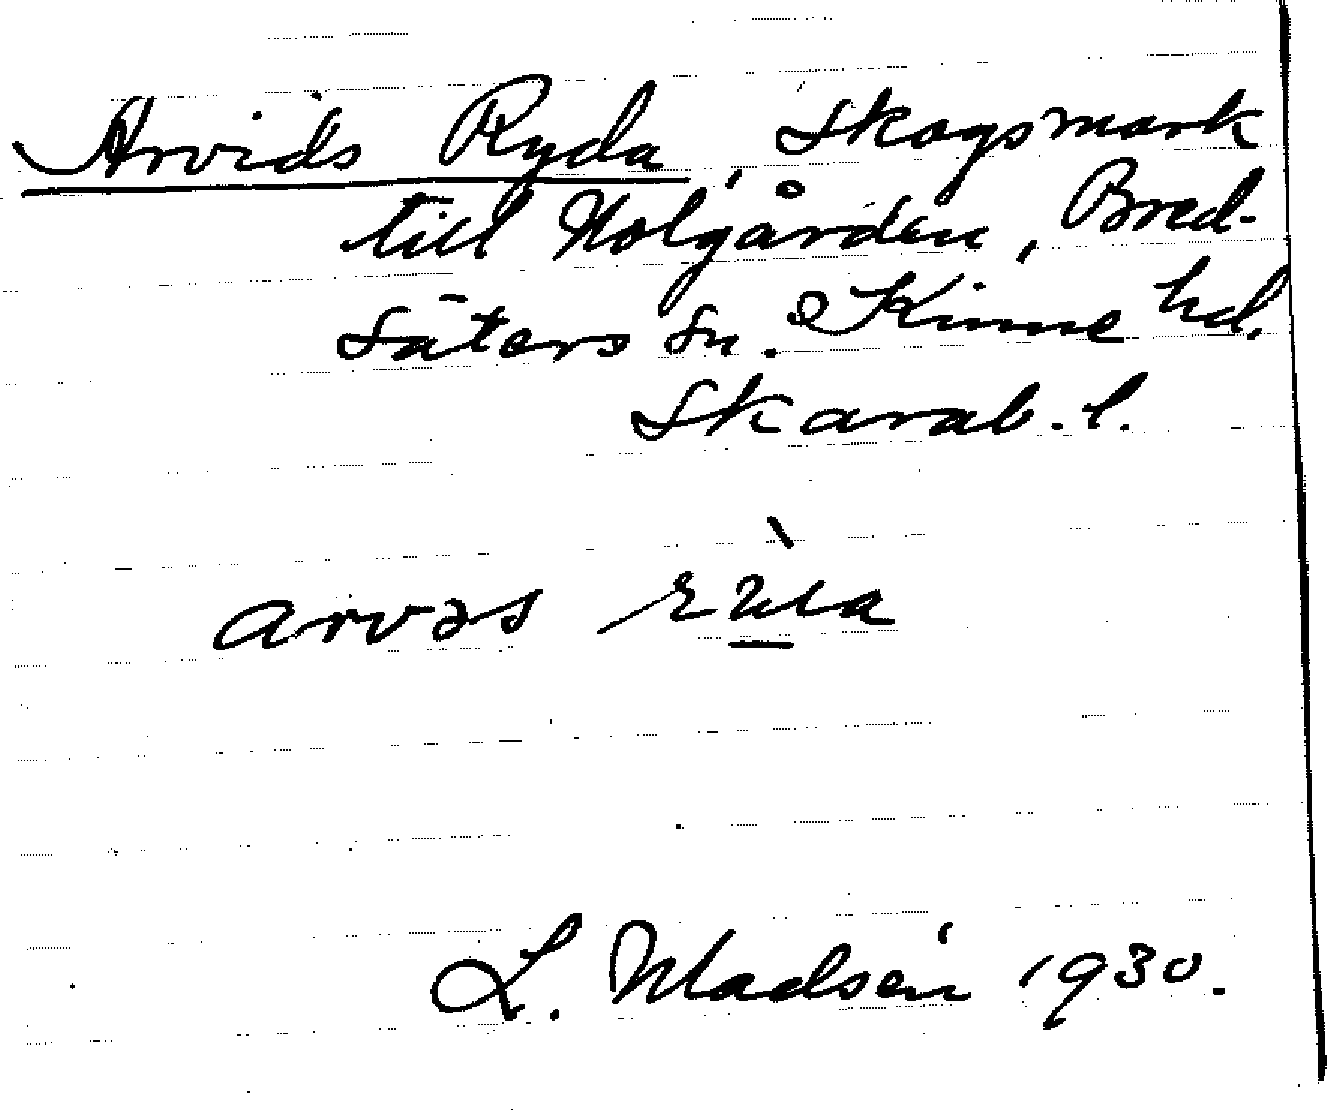 Arvids Ryda, Skogsmark
till Nolgården, Bred-
säters sn. Kinne hd.
Skarab. l.
arvəs
L. Madsén 1930.